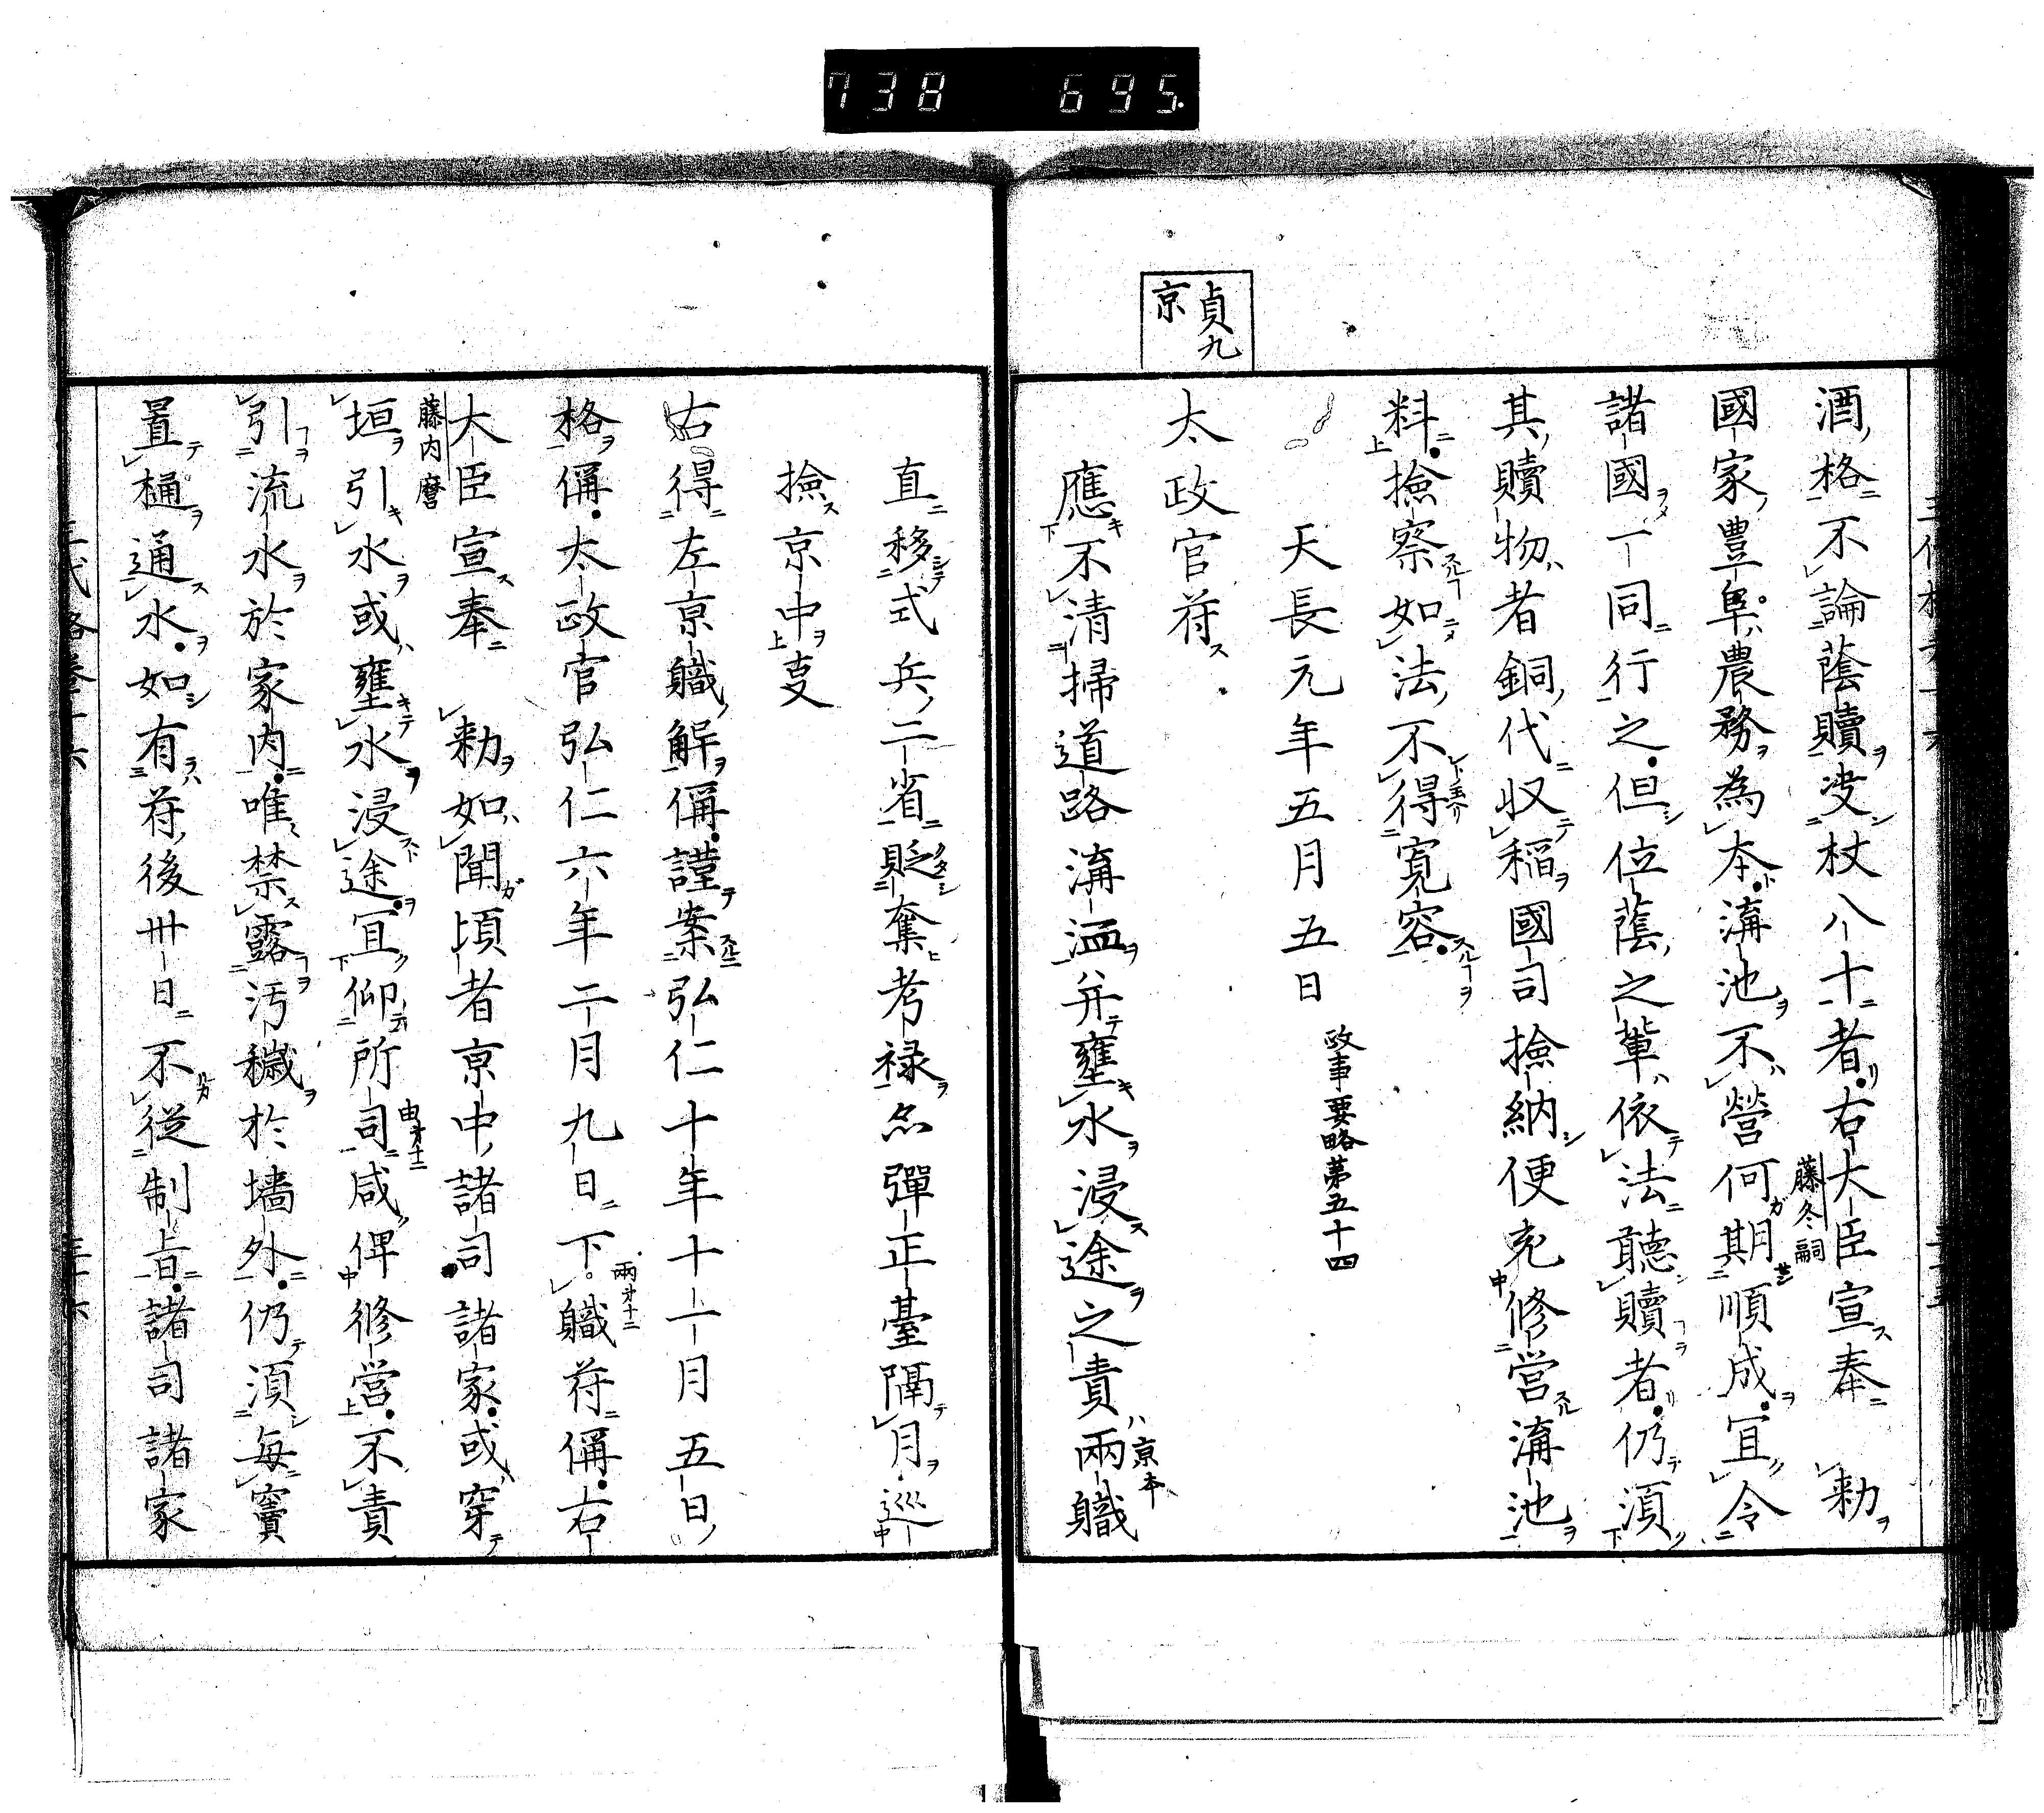 738 695.
貞九
京
酒格不論蔭贖决杖八十者右大臣宣奉 勑
藤冬嗣
國家豊阜農務為本溝池不營何期順成冝令
諸國一同行之但位蔭之輩依法聽贖者仍湏
其贖物者銅代収稲國司撿納便充修営溝池
料撿察如法不得寛容
天長元年五月五日
政事要略第五十四
太政官符
應不清掃道路溝洫并壅水浸途之責兩軄
京本
直移式兵二省貶奪考禄亦彈正臺隔月巡
撿京中事
右得左京軄解偁謹案弘仁十年十一月五日
格偁太政官弘仁六年二月九日下軄符偁右
大臣宣奉 勑如聞頃者京中諸司諸家或穿
藤内麿
垣引水或壅水浸途冝仰所司咸俾修営不責
引流水於家内唯禁露汚穢於墻外仍湏毎竇
置樋通水如有符後卅日不從制旨諸司諸家